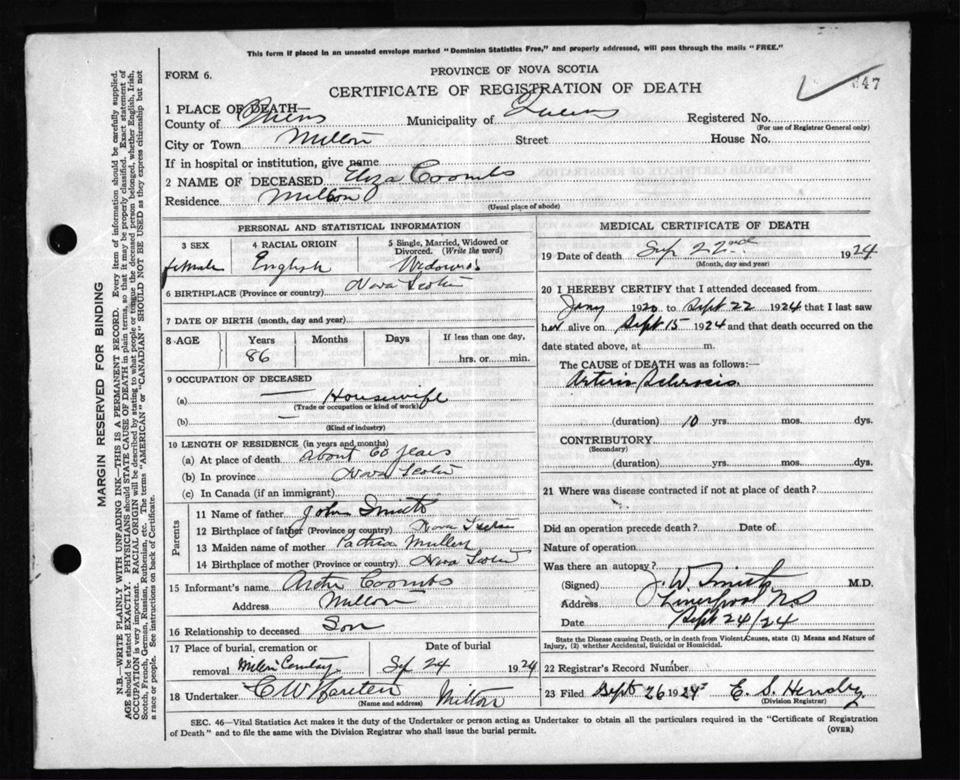 This form if placed in an unsealed envelope marked "Dominion Statistics Free," and properly addressed, will pass through the mails "FREE."
FORM 6.
PROVINCE OF NOVA SCOTIA
CERTIFICATE OF REGISTRATION OF DEATH
47
1 PLACE OF DEATH—
County of Queens Municipality of Queens Registered No.
(For use of Registrar General only)
City or Town Milton Street House No.
If in hospital or institution, give name
2 NAME OF DECEASED Eliza Coombs
Residence Milton
(Usual place of abode)
PERSONAL AND STATISTICAL INFORMATION
3 SEX 4 RACIAL ORIGIN 5 Single, Married, Widowed or Divorced. (Write the word)
female English Widowed
6 BIRTHPLACE (Province or country) Nova Scotia
7 DATE OF BIRTH (month, day and year)
8 AGE Years Months Days If less than one day,
86 hrs. or min.
9 OCCUPATION OF DECEASED
(a) — Housewife
(Trade or occupation or kind of work)
(b) —
(Kind of industry)
10 LENGTH OF RESIDENCE (in years and months)
(a) At place of death About 60 years
(b) In province Nova Scotia
(c) In Canada (if an immigrant)
Parents
11 Name of father John Smith
12 Birthplace of father (Province or country) Nova Scotia
13 Maiden name of mother
14 Birthplace of mother (Province or country) Nova Scotia
15 Informant's name Coombs
Address Milton
16 Relationship to deceased Son
17 Place of burial, cremation or Date of burial
removal Milton Cemetary Sep 24 1924
18 Undertaker C W Milton
(Name and address)
MEDICAL CERTIFICATE OF DEATH
19 Date of death Sep 22nd 1924
(Month, day and year)
20 I HEREBY CERTIFY that I attended deceased from
Jany 1920 to Sept 22 1924 that I last saw
her alive on Sept 15 1924 and that death occurred on
date stated above, at m.
The CAUSE OF DEATH was as follows:—
Arterio Sclerosis
(duration) 10 yrs. mos. dys.
CONTRIBUTORY
(Secondary)
(duration) yrs. mos. dys.
21 Where was disease contracted if not at place of death?
Did an operation precede death? Date of
Nature of operation
Was there an autopsy?
(Signed) J. W. Smith M.D.
Address Liverpool N.S
Date Sept 24/24
State the Disease causing Death, or in death from Violent Causes, state (1) Means and Nature of
Injury, (2) whether Accidental, Suicidal or Homicidal.
22 Registrar's Record Number
23 Filed Sept 26 1924 E. S.
(Division Registrar)
SEC. 46—Vital Statistics Act makes it the duty of the Undertaker or person acting as Undertaker to obtain all the particulars required in the "Certificate of Registration
of Death" and to file the same with the Division Registrar who shall issue the burial permit.
(OVER)
MARGIN RESERVED FOR BINDING
N.B.—WRITE PLAINLY WITH UNFADING INK—THIS IS A PERMANENT RECORD. Every item of information should be carefully supplied.
AGE should be stated EXACTLY. PHYSICIANS should STATE CAUSE OF DEATH in plain terms, so that it may be properly classified. Exact statement of
OCCUPATION is very important. RACIAL ORIGIN will be described by stating to what people or tongue the deceased person belonged, whether English, Irish,
Scotch, French, German, Russian, Ruthenian, etc. The terms "AMERICAN" or "CANADIAN" SHOULD NOT BE USED as they express citizenship but not
a race or people. See instructions on back of Certificate.